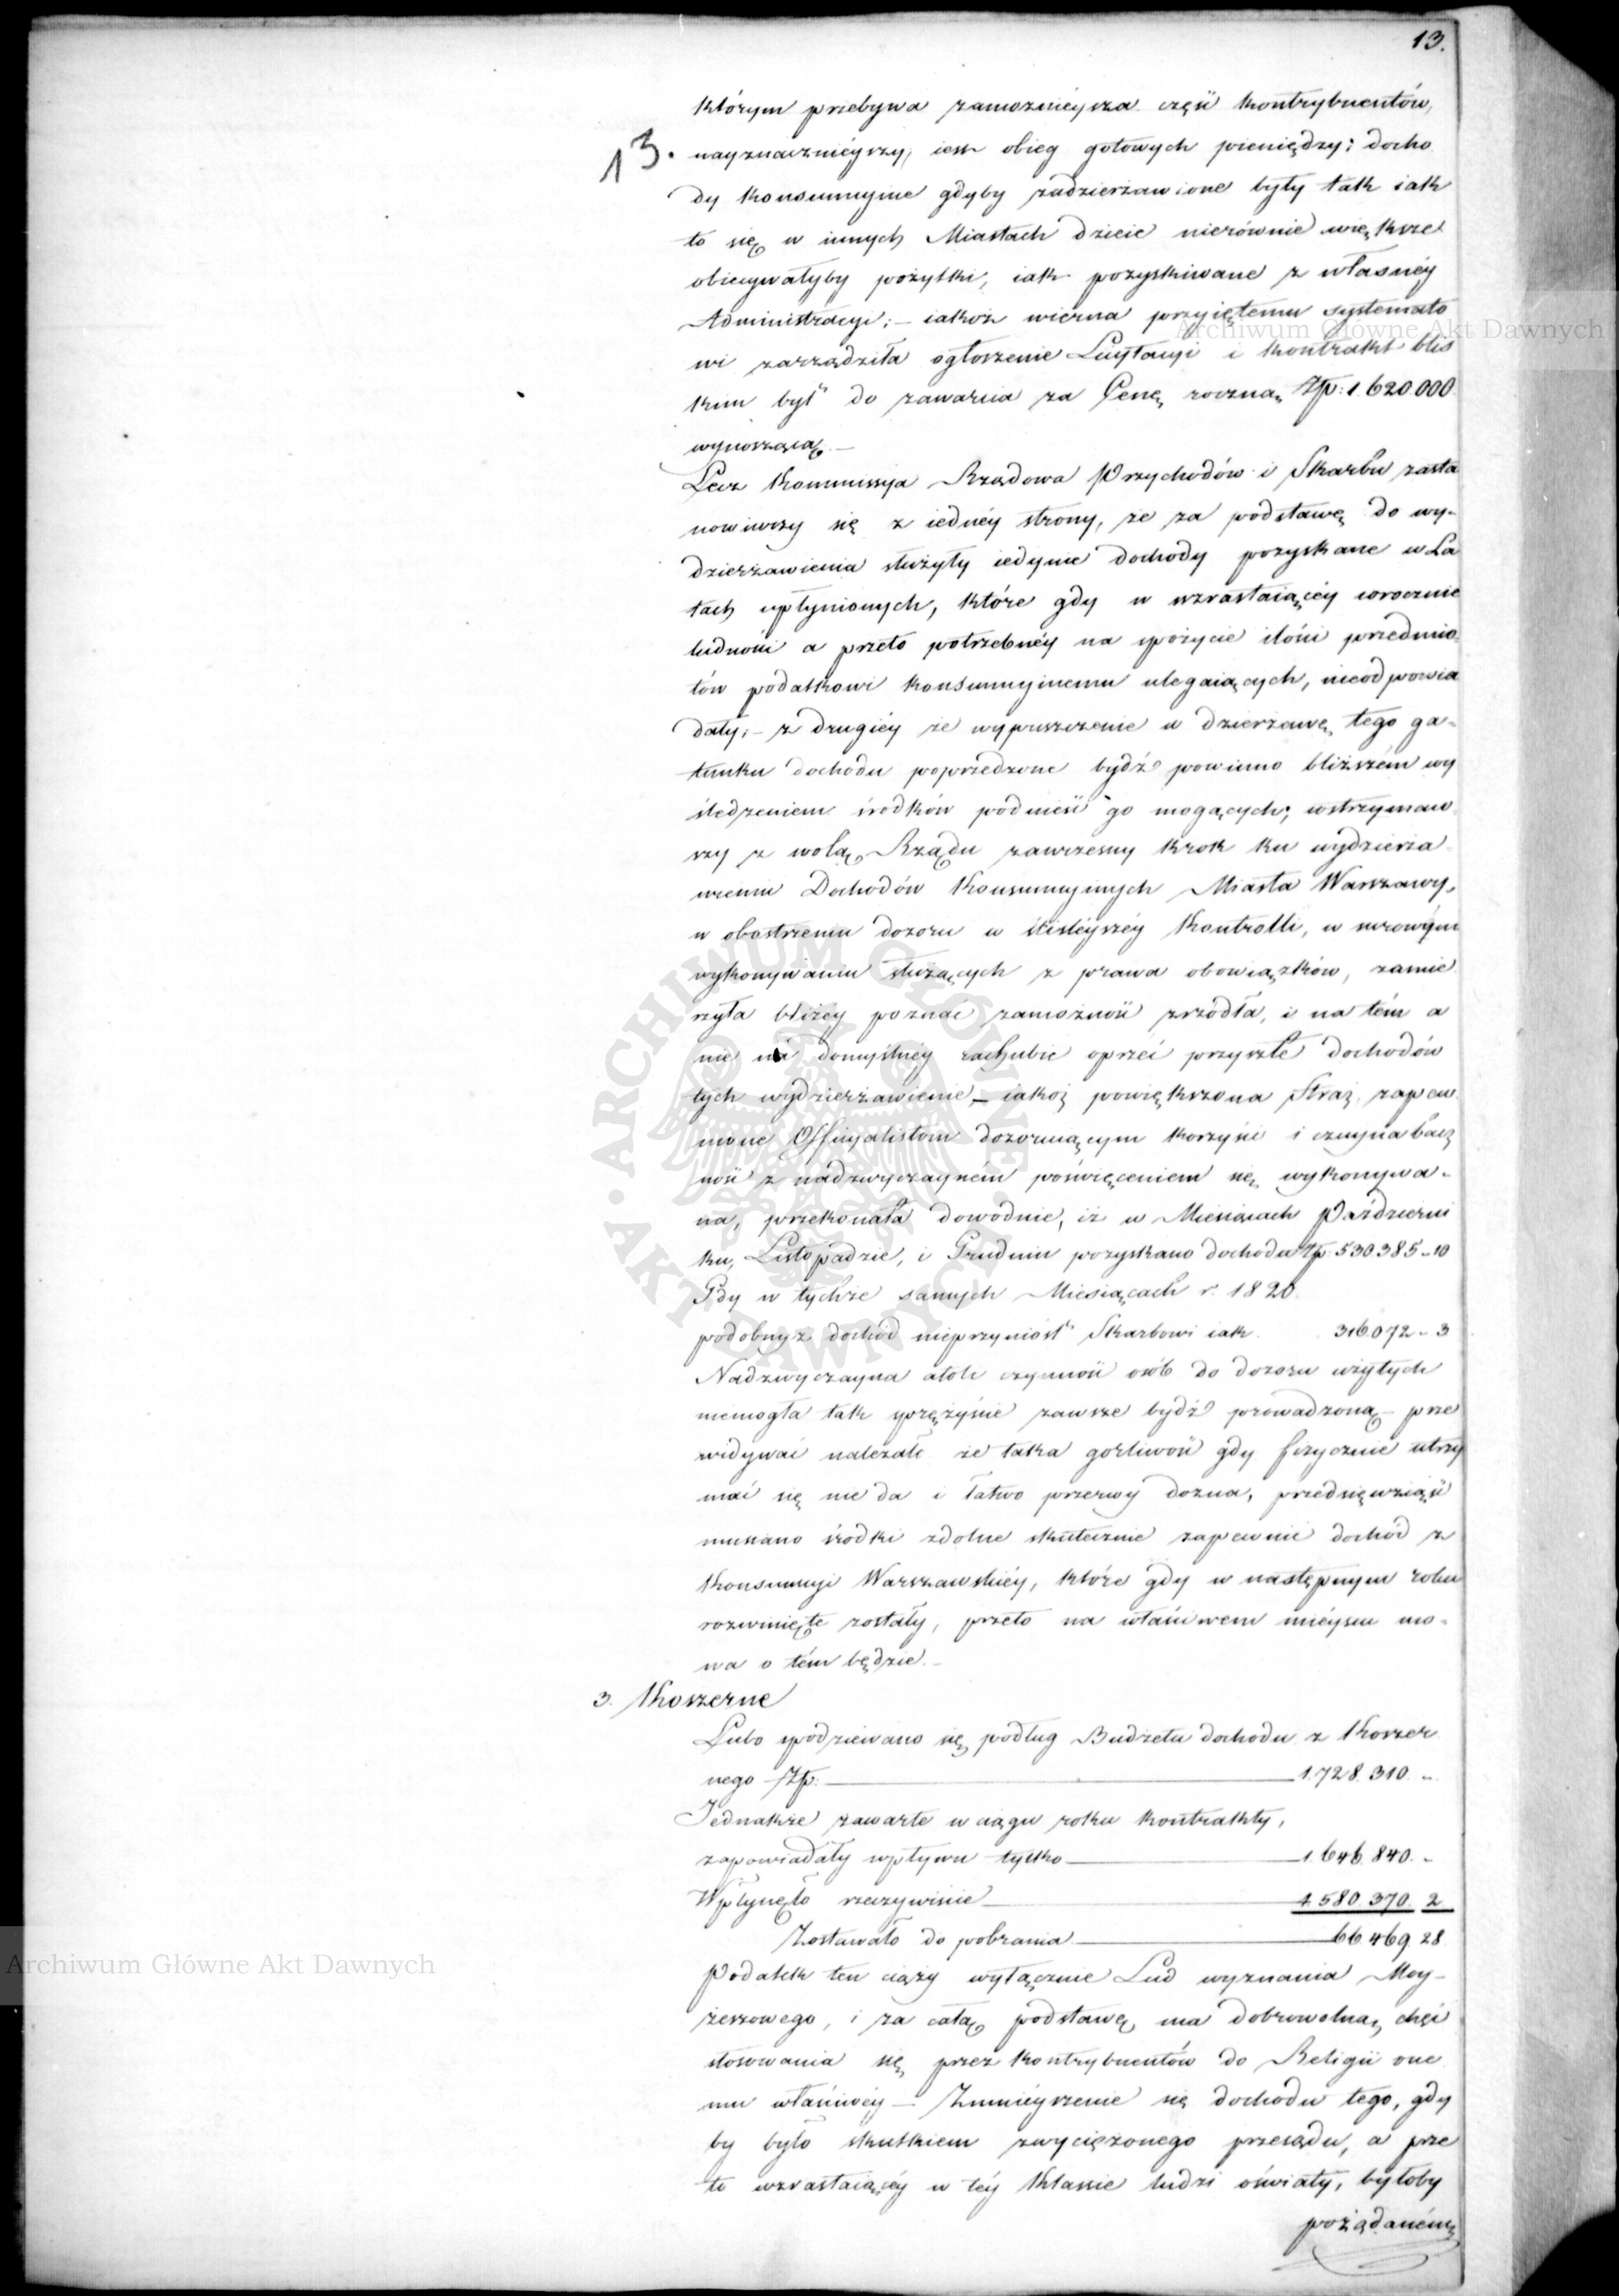 13.
którym przebywa zamożnieysza część kontrybuentów,
13.
nayznacznieyszy, iest obieg gotowych pieniędzy; docho
dy konsumcyine gdyby zadzierżawione były tak iak
to się w innych Miastach dzieie nierównie większe
obiecywałyby pożytki, iak pozyskiwane z własnéy
Administracyi; – iakoż wierna przyiętemu systemato
wi zarządziła ogłoszenie Licytacyi i kontrakt blis
kim był do zawarcia za Cenę roczną Złp: 1.620.000
wynoszącą. –
Lecz Kommissyia Rządowa Przychodów i Skarbu zasta
nowiwszy się z iednéy strony, że za podstawę do wy-
dzierżawienia służyły iedynie dochody pozyskane w La
tach upłynionych, które gdy w wzrastaiącéy corocznie
ludności a przeto potrzebnéy na spożycie ilości przedmio
tów podatkowi konsumcyinemu ulegaiących, nieodpowia
dały; – z drugiéy że wypuszczenie w dzierżawę tego ga-
tunku dochodu poprzedzone bydź powinno bliższém wy
śledzeniem środków podnieść go mogących; wstrzymaw
szy z wolą Rządu zawczesny krok ku wydzierża
wieniu Dochodów Konsumcyinych Miasta Warszawy,
w obostrzeniu dozoru w ściśleyszéy Kontrolli, w surowym
wykonywaniu służących z prawa obowiązków, zamie
rzyła bliżéy poznać zamożność zrzódła, i na tém a
nie na domyślnéy rachubie oprzeć przyszłe dochodów
tych wydzierżawienie, – iakoż powiększona Straż, zapew
nione Officyalistom dozoruiącym korzyści i czuyna bacz
ność z nadzwyczayném poświęceniem się wykonywa-
na, przekonała dowodnie, iż w Miesiącach Październi
ku, Listopadzie, i Grudniu pozyskano dochodu Złp: 530385 „ 10
Gdy w tychże samych Miesiącach r. 1820.
podobnyż dochód nieprzyniósł Skarbowi iak 316.072 „ 3
Nadzwyczayna atoli czynność osób do dozoru użytych
niemogła tak sprężyście zawsze bydź prowadzoną – prze
widywać należało że taka gorliwość gdy fizycznie utrzy
mać się nie da i łatwo przerwy dozna, przedsięwziąść
musiano środki zdolne skutecznie zapewnić dochód z
Konsumcyi Warszawskiéy, które gdy w następnym roku
rozwinięte zostały, przeto na właściwem mieyscu mo-
wa o tém będzie. –
3. Koszerne
Lubo spodziewano się podług Budżetu dochodu z Koszer
nego Złp: 1.728.310. „
Jednakże zawarte w ciągu roku kontrakty,
zapowiadały wpływu tylko 1.646.840. „
Wpłynęło rzeczywiście 1.580.370. 2
Zostawało do pobrania 66.469. 28
Podatek ten ciąży wyłącznie Lud wyznania Moy-
żeszowego, i za całą podstawę ma dobrowolną chęć
stosowania się przez kontrybuentów do Religii one
mu właściwéy – Zmnieyszenie się dochodu tego, gdy
by było skutkiem zwyciężonego przesądu, a prze
to wzrastaiącéy w téy Klassie ludzi oświaty, byłoby
pożądaném
Archiwum Główne Akt Dawnych
ARCHIWUM GŁÓWNE AKT DAWNYCH
Archiwum Główne Akt Dawnych